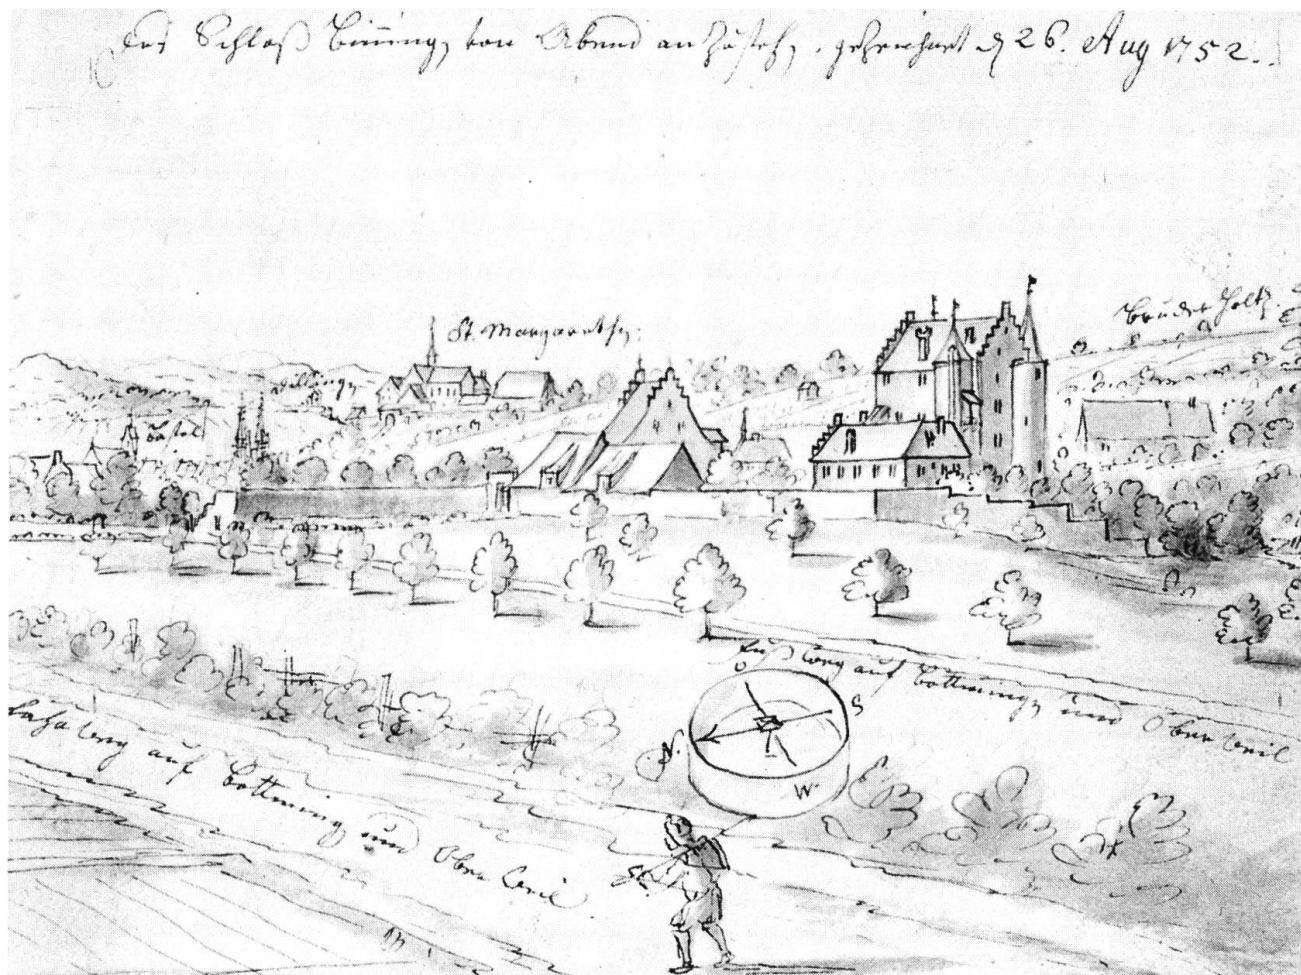 das Schloß Binningen von Abend an zusehen. gezeichnet den 26. Aug 1752.
St. Margarethen.
Bruder Holtz.
Basel
Fuß weg auf Bottmingen und Oberweil
O
S
N.
W.
weg auf Bottmingen und Oberweil